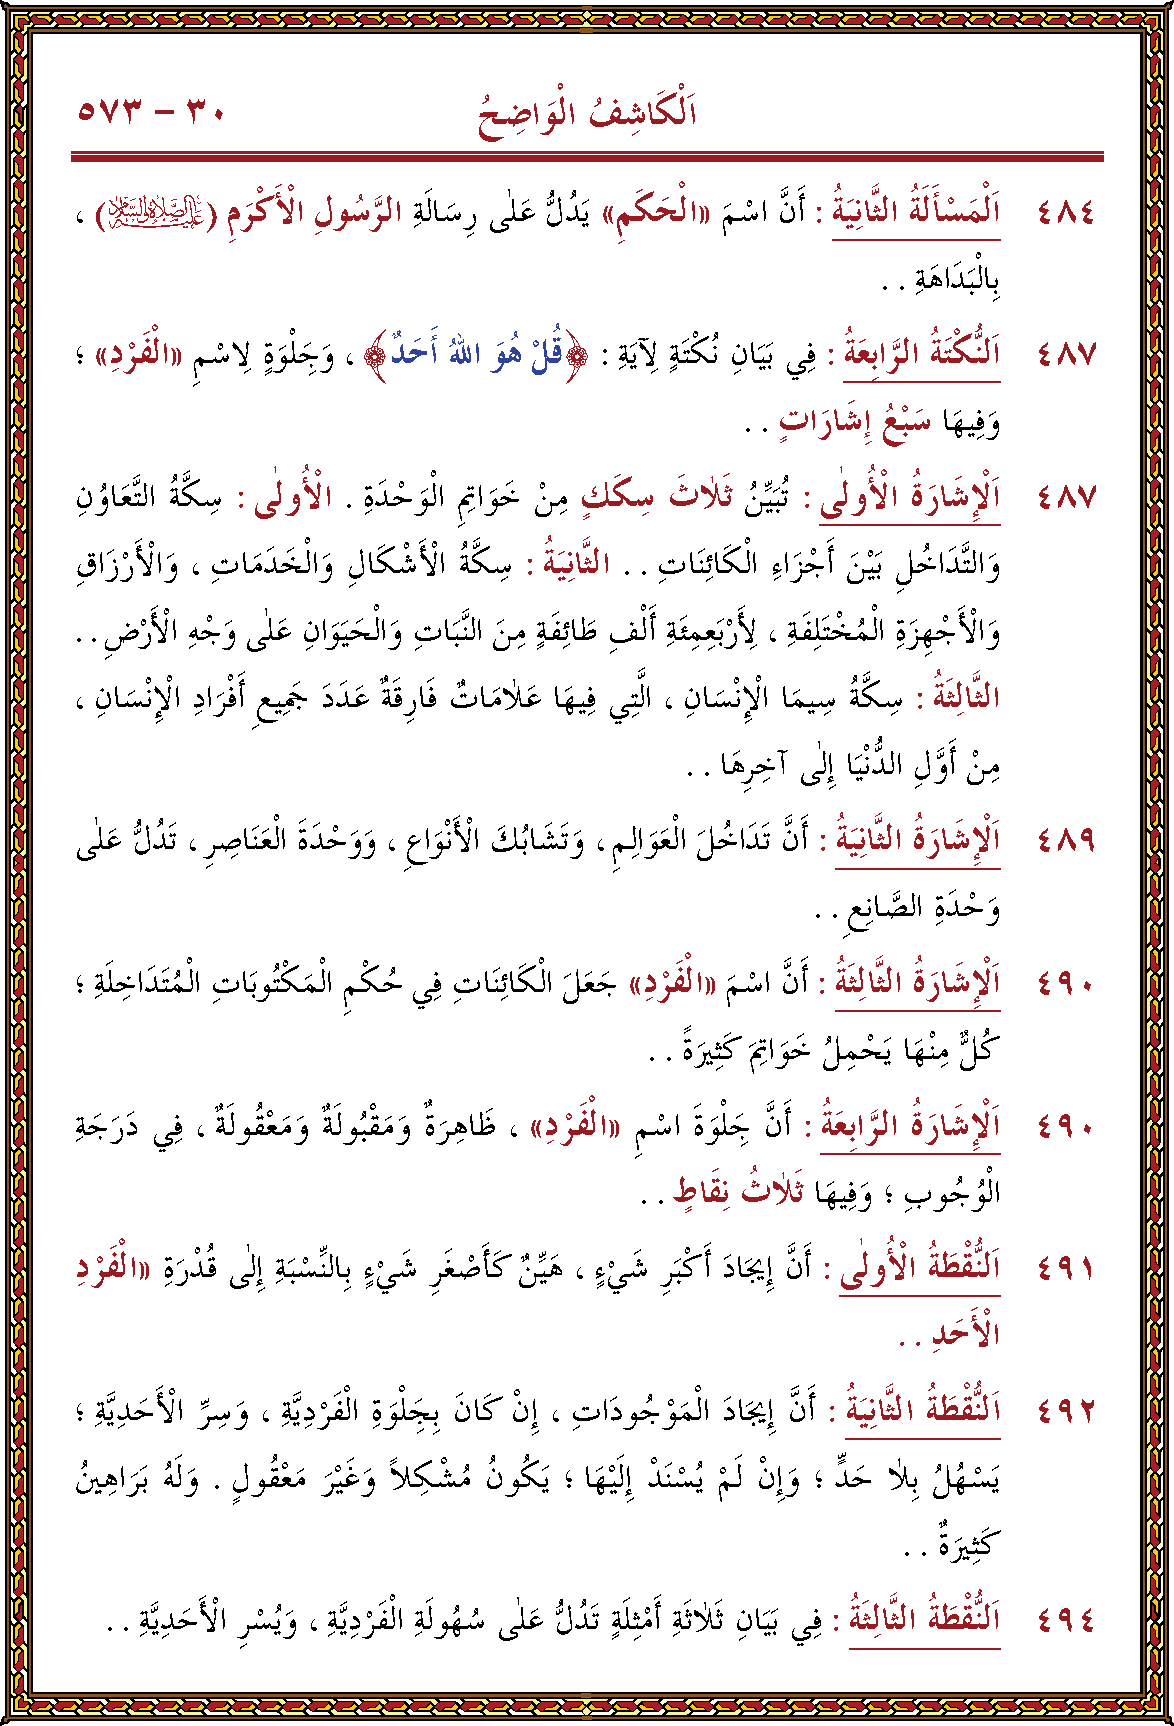 اَلْكَاشِفُ الْوَاضِحُ ٣٠ – ٥٧٣
٤٨٤ اَلْمَسْأَلَةُ الثَّانِيَةُ : أَنَّ اسْمَ «الْحَكَمِ» يَدُلُّ عَلٰى رِسَالَةِ الرَّسُولِ الْأَكْرَمِ (عَلَيْهِ الصَّلَاةُ وَالسَّلَامُ) ،
بِالْبَدَاهَةِ . .
٤٨٧ اَلنُّكْتَةُ الرَّابِعَةُ : فِي بَيَانِ نُكْتَةٍ لِآيَةِ : ﴿قُلْ هُوَ اللّٰهُ أَحَدٌ﴾ ، وَجِلْوَةٍ لِاسْمِ «الْفَرْدِ» ؛
وَفِيهَا سَبْعُ إِشَارَاتٍ . .
٤٨٧ اَلْإِشَارَةُ الْأُولٰى : تُبَيِّنُ ثَلٰاثَ سِكَكٍ مِنْ خَوَاتِمِ الْوَحْدَةِ . الْأُولٰى : سِكَّةُ التَّعَاوُنِ
وَالتَّدَاخُلِ بَيْنَ أَجْزَاءِ الْكَائِنَاتِ . . الثَّانِيَةُ : سِكَّةُ الْأَشْكَالِ وَالْخَدَمَاتِ ، وَالْأَرْزَاقِ
وَالْأَجْهِزَةِ الْمُخْتَلِفَةِ ، لِأَرْبَعِمِئَةِ أَلْفِ طَائِفَةٍ مِنَ النَّبَاتِ وَالْحَيَوَانِ عَلٰى وَجْهِ الْأَرْضِ . .
الثَّالِثَةُ : سِكَّةُ سِيمَا الْإِنْسَانِ ، الَّتِي فِيهَا عَلٰامَاتٌ فَارِقَةٌ عَدَدَ جَمِيعِ أَفْرَادِ الْإِنْسَانِ ،
مِنْ أَوَّلِ الدُّنْيَا إِلٰى آخِرِهَا . .
٤٨٩ اَلْإِشَارَةُ الثَّانِيَةُ : أَنَّ تَدَاخُلَ الْعَوَالِمِ ، وَتَشَابُكَ الْأَنْوَاعِ ، وَوَحْدَةَ الْعَنَاصِرِ ، تَدُلُّ عَلٰى
وَحْدَةِ الصَّانِعِ . .
٤٩٠ اَلْإِشَارَةُ الثَّالِثَةُ : أَنَّ اسْمَ «الْفَرْدِ» جَعَلَ الْكَائِنَاتِ فِي حُكْمِ الْمَكْتُوبَاتِ الْمُتَدَاخِلَةِ ؛
كُلٌّ مِنْهَا يَحْمِلُ خَوَاتِمَ كَثِيرَةً . .
٤٩٠ اَلْإِشَارَةُ الرَّابِعَةُ : أَنَّ جِلْوَةَ اسْمِ «الْفَرْدِ» ، ظَاهِرَةٌ وَمَقْبُولَةٌ وَمَعْقُولَةٌ ، فِي دَرَجَةِ
الْوُجُوبِ ؛ وَفِيهَا ثَلٰاثُ نِقَاطٍ . .
٤٩١ اَلنُّقْطَةُ الْأُولٰى : أَنَّ إِيجَادَ أَكْبَرِ شَيْءٍ ، هَيِّنٌ كَأَصْغَرِ شَيْءٍ بِالنِّسْبَةِ إِلٰى قُدْرَةِ «الْفَرْدِ
الْأَحَدِ . .
٤٩٢ اَلنُّقْطَةُ الثَّانِيَةُ : أَنَّ إِيجَادَ الْمَوْجُودَاتِ ، إِنْ كَانَ بِجَلْوَةِ الْفَرْدِيَّةِ ، وَسِرِّ الْأَحَدِيَّةِ ؛
يَسْهُلُ بِلٰا حَدٍّ ؛ وَإِنْ لَمْ يُسْنَدْ إِلَيْهَا ؛ يَكُونُ مُشْكِلاً وَغَيْرَ مَعْقُولٍ . وَلَهُ بَرَاهِينُ
كَثِيرَةٌ . .
٤٩٤ اَلنُّقْطَةُ الثَّالِثَةُ : فِي بَيَانِ ثَلٰاثَةِ أَمْثِلَةٍ تَدُلُّ عَلٰى سُهُولَةِ الْفَرْدِيَّةِ ، وَيُسْرِ الْأَحَدِيَّةِ . .